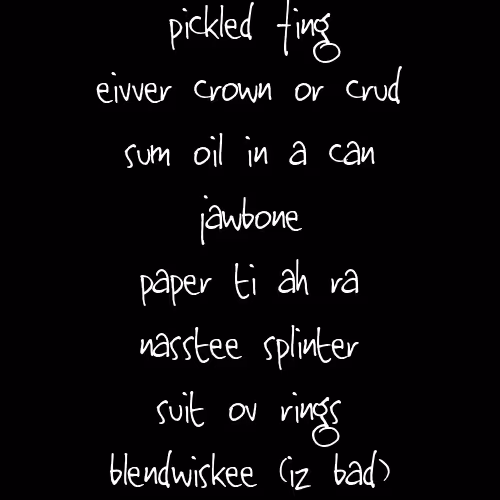 pickled ting
eivver crown or crud
sum oil in a can
jawbone
paper ti ah ra
nasstee splinter
suit ov rings
blendwiskee (iz bad)